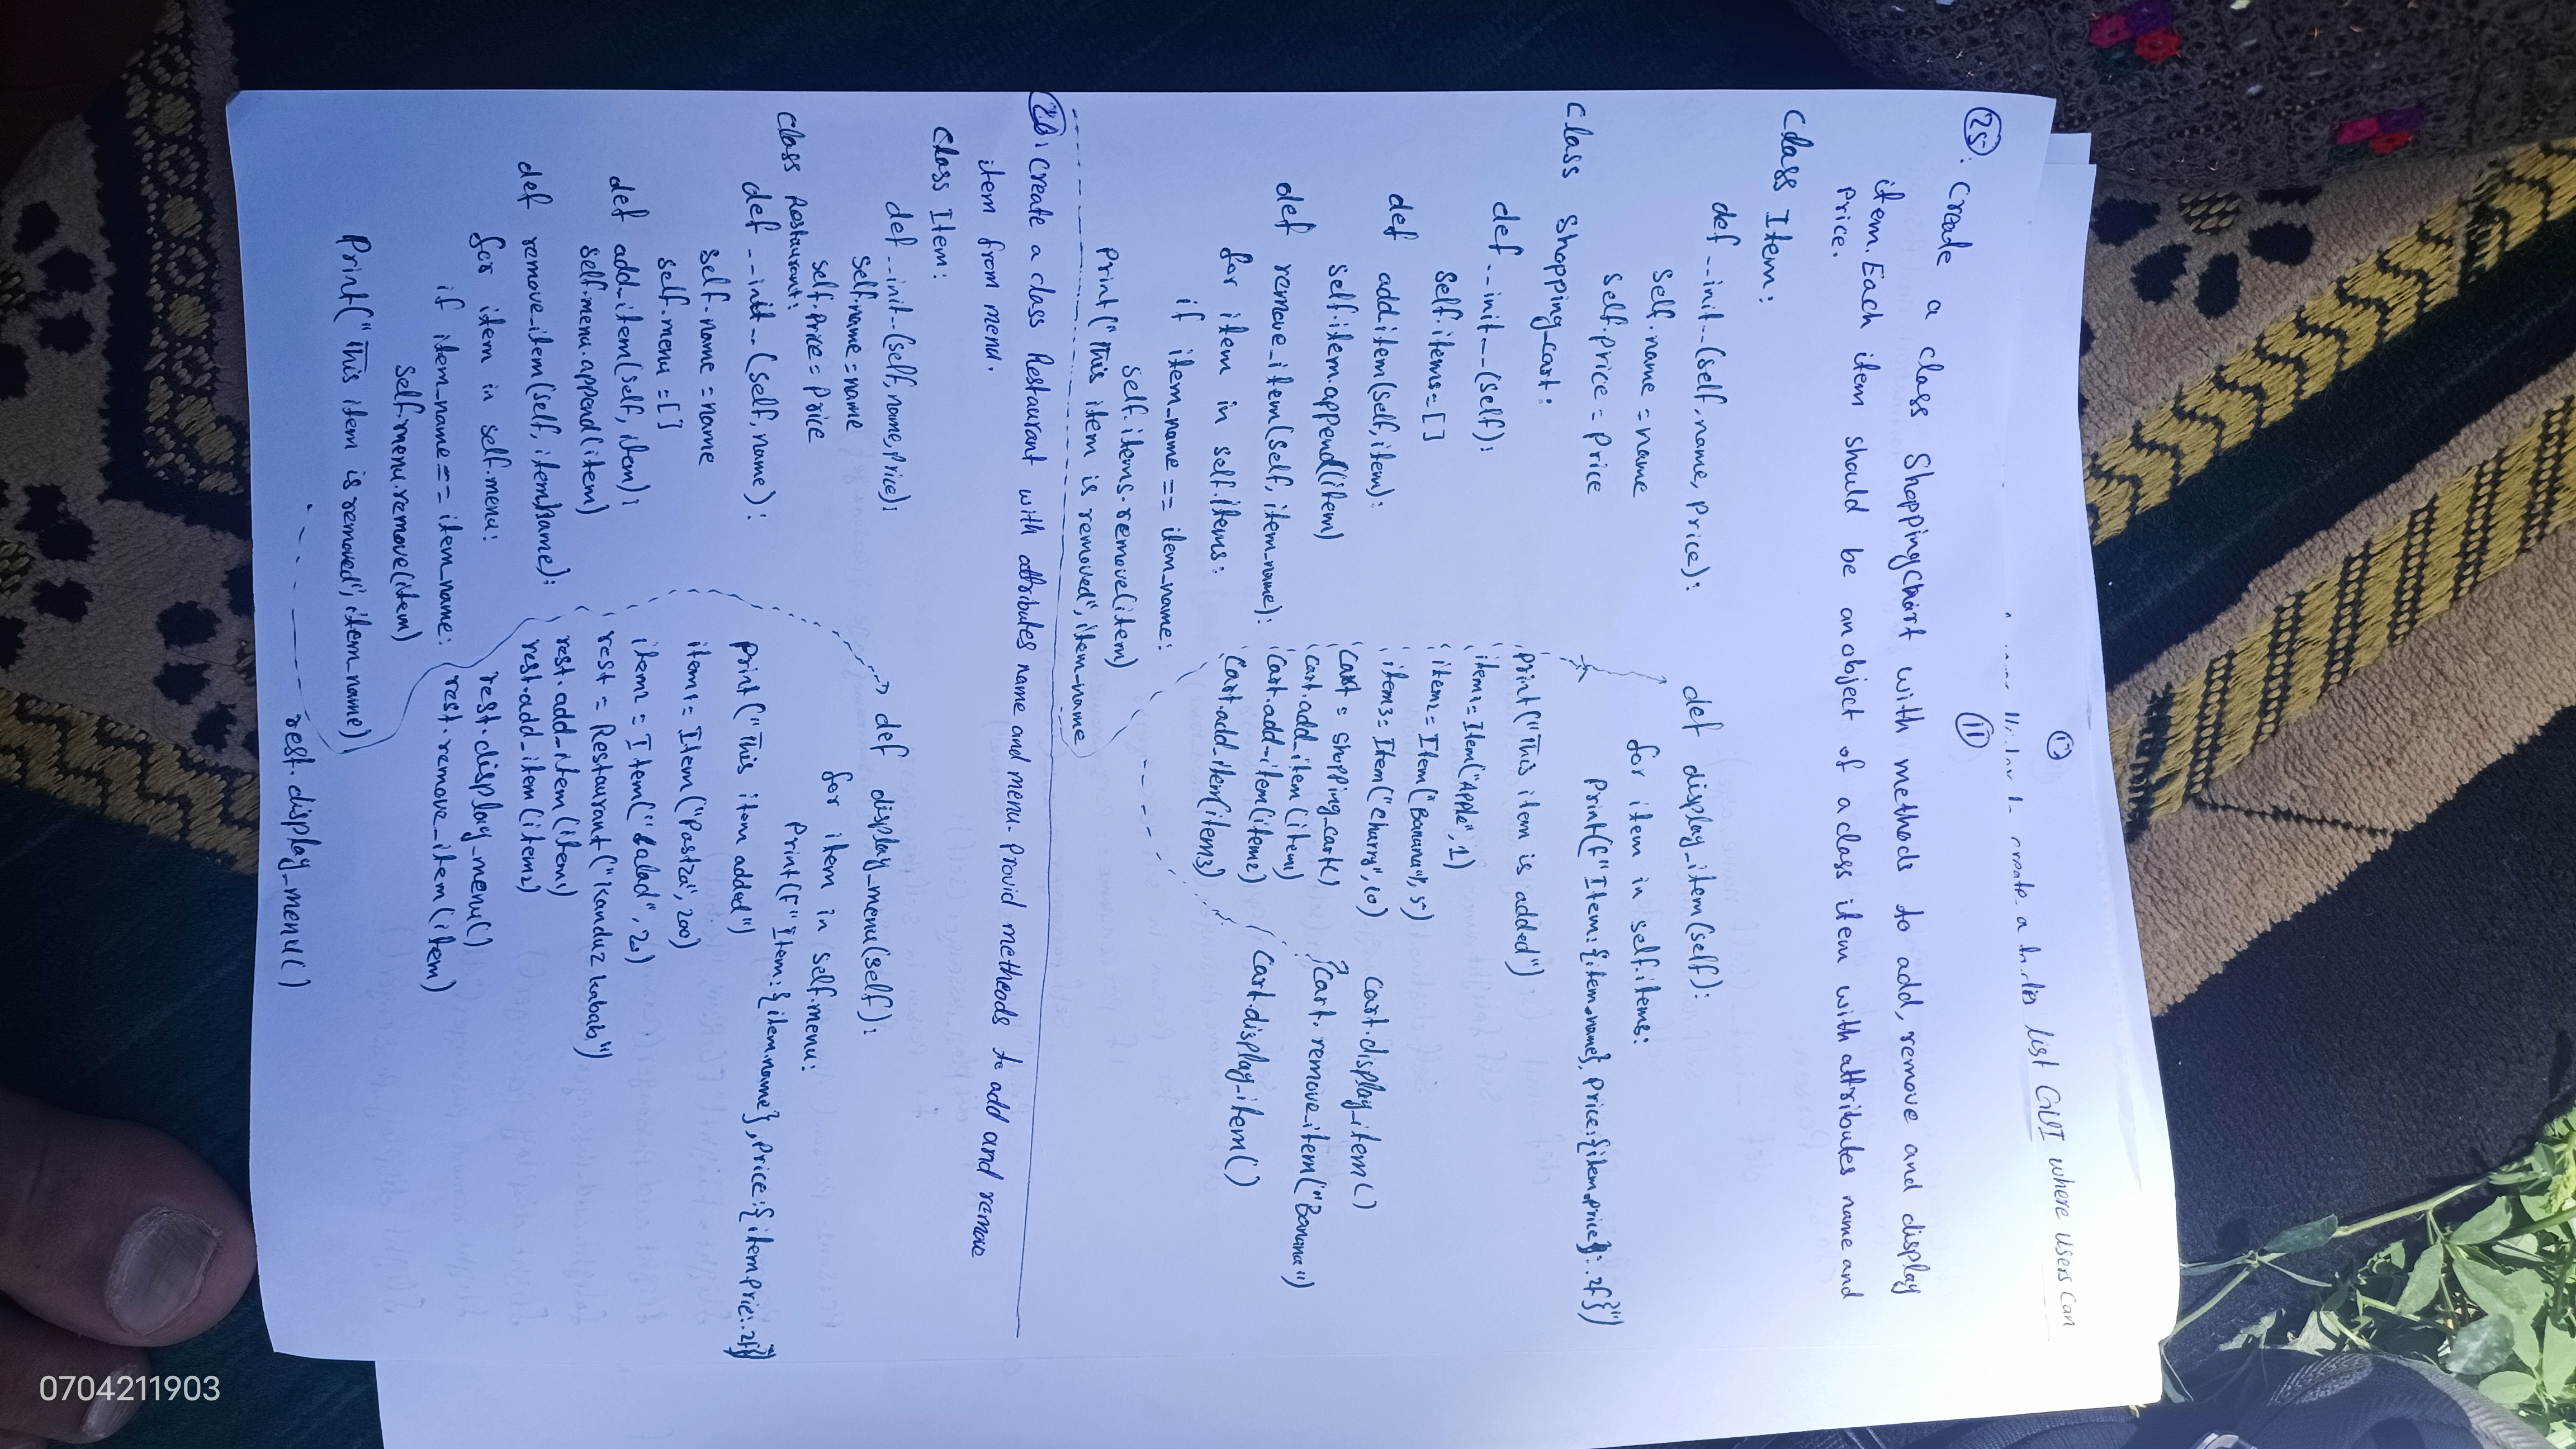 list GUI where users can
11
25. Create a class ShoppingChart with methods to add, remove and display
item. Each item should be an object of a class item with attributes name and
price.
class Item:
def __init__(self, name, price):
self.name = name
self.price = price
class Shopping_cart:
def __init__(self):
self.items=[]
def add item(self, item):
self.item.append(item)
def remove_item(self, item_name):
for item in self.items:
if item_name == item_name:
self.items.remove(item)
print("This item is removed", item_name
def display_item(self):
for item in self.items:
print(f"Item:{item.name}, price:{item.price}:.2f}")
print("This item is added")
item1=Item("Apple",1)
item2=Item("Banana",5)
item3=Item("Charry",10)
Cart = Shopping_cart()
Cart.add_item(item1)
Cart.add_item(item2)
Cart.add_item(item3)
Cart.display_item()
Cart.remove_item("Banana")
Cart.display_item()
26. Create a class Restaurant with attributes name and menu. Provid metheods to add and remove
item from menu.
class Item:
def __init__(self, name, price):
self.name=name
self.price=price
class Restaurant:
def __init__(self, name):
self.name=name
self.menu=[]
def add_item(self, item):
self.menu.append(item)
def remove_item(self, itemname):
for item in self.menu:
if item_name == item_name:
self.menu.remove(item)
print("This item is removed", item_name)
def display_menu(self):
for item in self.menu:
print(f"Item:{item.name}, price:{item.price:.2f}")
print("This item added")
item1=Item("Pastza",200)
item2=Item("Salad",20)
rest=Restaurant("Kanduz kabab")
rest.add_item(item1)
rest.add_item(item2)
rest.display_menu()
rest.remove_item(item)
rest.display_menu()
0704211903